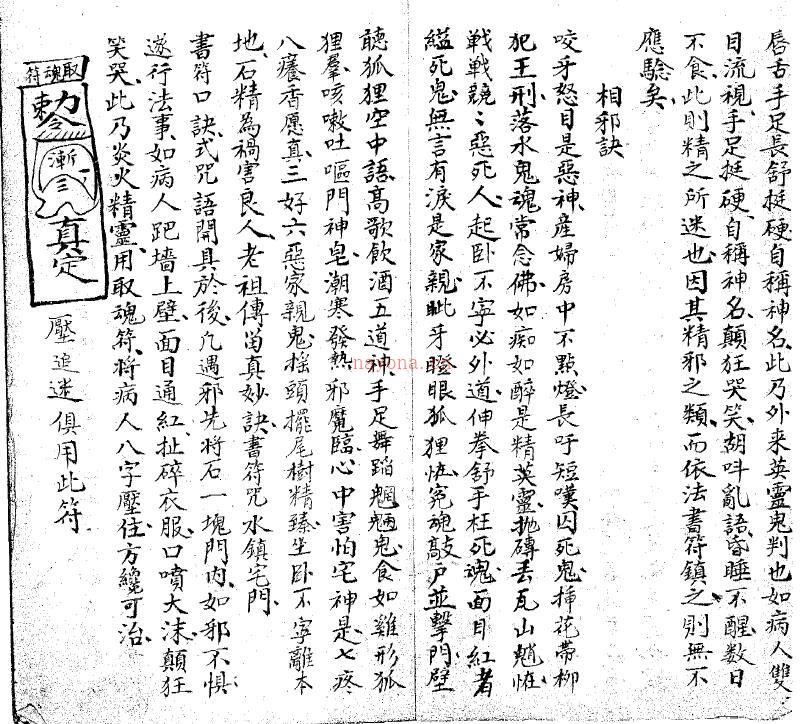 唇舌手足長舒挺硬自稱神名此乃外來英靈鬼判也如病人雙
目流視手足挺硬自稱神名顛狂哭笑胡呌亂語昏睡不醒数日
不食此則精之所迷也因其精邪之類而依法書符鎮之則無不
應騐矣
相邪訣
咬牙怒目是惡神產婦房中不點燈長吁短嘆囚死鬼揷花帶柳
犯王刑落水鬼魂常念佛如痴如醉是精英靈抛磚丢瓦山魈怪
戦戦競〻惡死人起卧不宁必外道伸拳舒手枉死魂面目紅者
縊死鬼無言有淚是家親呲牙眼狐狸怪寃魂敲戸並擊門壁
聽狐狸空中語高歌飲酒五道手足舞蹈魍魎鬼食如雞形狐
狸羣咳嗽吐嘔門神皂潮寒發熱邪魔臨心中害怕宅神是七疼
八癢香愿真三好六惡家親鬼搖頭擺尾樹精臻坐卧不宁離本
地石精為禍害良人老祖傳畄真妙訣書符咒水鎮宅門
書符口訣式咒語開具於後凢遇邪先將石一塊門内如邪不惧
遂行法事如病人跁墻上壁面目通紅扯碎衣服口噴大沫顛狂
笑哭此乃炎火精靈用取魂符將病人八字壓住方纔可治
取魂符
勅令
漸
三
真定
壓追迷俱用此符
nayona.cn